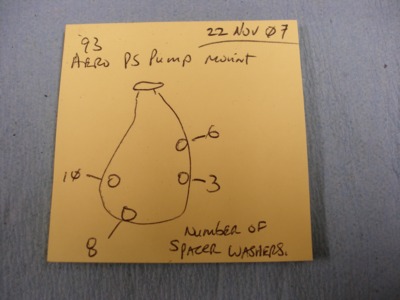 '93
22 NOV Ø7
AERO PS PUMP MOUNT
6
1Ø
3
8
NUMBER OF
SPACER WASHERS.